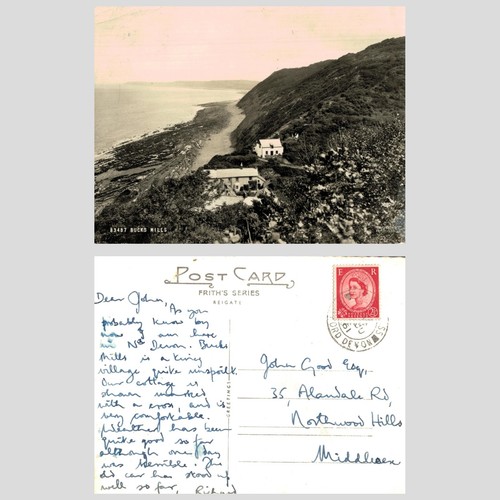 83487 BUCKS MILLS
POST CARD
FRITH'S SERIES
REIGATE
Dear John,
As you
probably know by
now I am here
in Nth Devon. Bucks
Mills is a tiny
village quite unspoilt.
Our cottage is
shown marked
with a cross, and is
very comfortable.
Weather has been
quite good so far
although one day
was terrible. The
old car has stood up
well so far, Richard
E R
2½D
DEVON
John Good Esq.,
35, Alandale Rd,
Northwood Hills
Middlesex